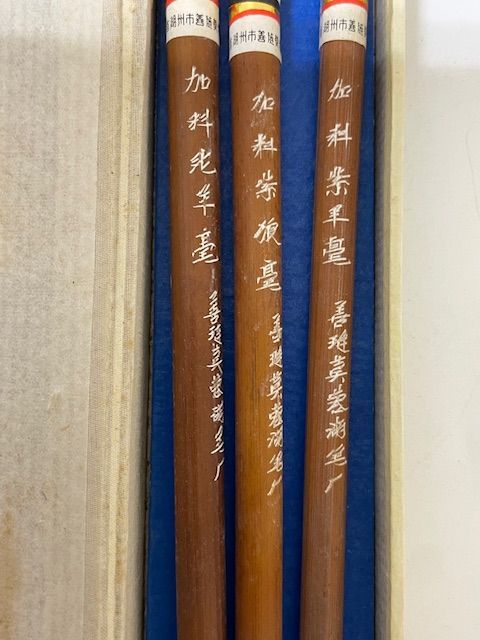 湖州市善琏
湖州市善琏
湖州市善琏
加料纯羊毫
善琏莫蓉湖笔厂
加料紫毫
善琏莫蓉湖笔厂
加料紫羊毫
善琏莫蓉湖笔厂